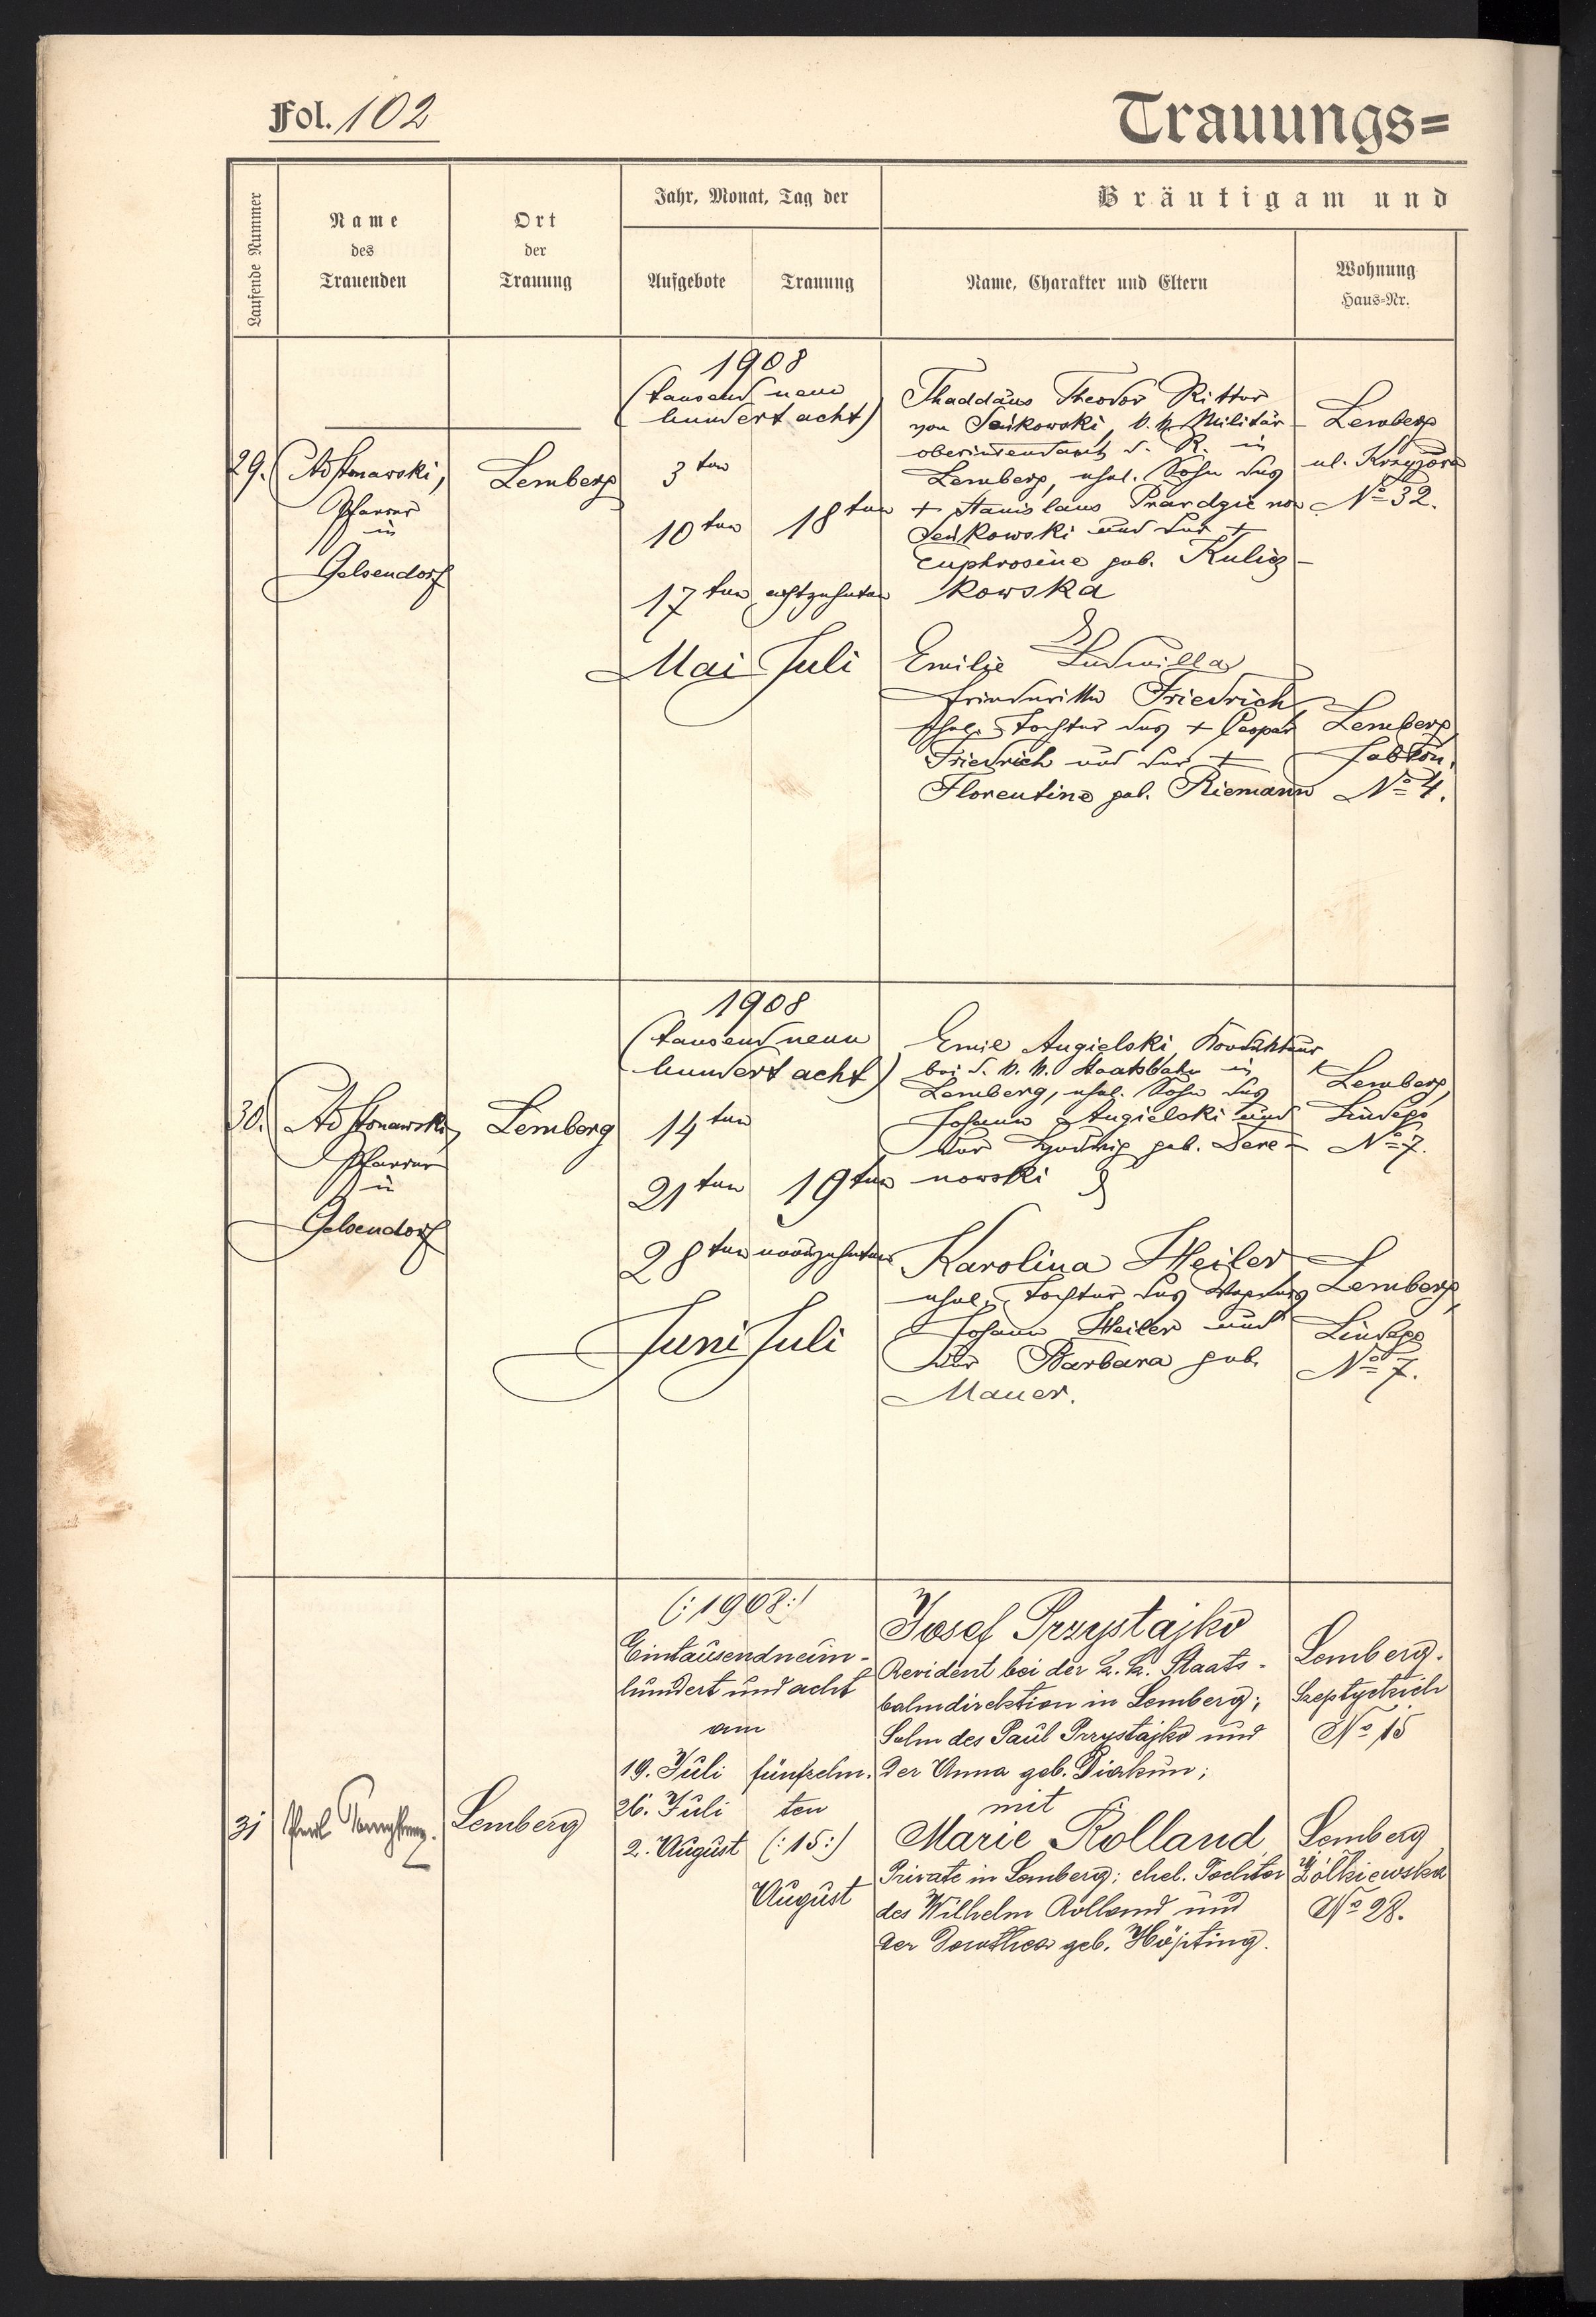 Fol. 102
Trauungs=
Laufende Nummer
Name
des
Trauenden
Ort
der
Trauung
Jahr, Monat, Tag der
Aufgebote
Trauung
Bräutigam und
Name, Charakter und Eltern
Wohnung
Haus=Nr.
29.
Pfarrer
in
Gelsendorf
Lemberg
1908
(tausend neun
hundert acht)
3ten
10ten
17ten
Mai
18ten
achtzehnten
Juli
Thaddäus Theodor Ritter
von Seńkowski, k. k. Militär-
oberintendant d. R. in
Lemberg, ehel. Sohn des
+ Stanislaus von
Seńkowski und der +
Euphrosine geb. Kulig-
kowska
&
Emilie Ludmilla
Friederike Friedrich
Ehel. Tochter des + Caspar
Friedrich und der +
Florentine geb. Riemann
Lemberg
ul. Krzyżowa
No 32.
Lemberg,
Jabłon.
No 4.
30.
Pfarrer
in
Gelsendorf
Lemberg
1908
(tausend neun
hundert acht)
14ten
21ten
28ten
Juni
19ten
neunzehnten
Juli
Emil Angielski, Kondukteur
bei d. k. k. Staatsbahn in
Lemberg, ehel. Sohn des
Johann Angielski und
der Hedwig geb. Dere-
nowski &
Karolina Heiler
ehel. Tochter des
Johann Heiler und
der Barbara geb.
Mauer.
Lemberg,
No 7.
Lemberg,
No 7.
31
Lemberg
(:1908:)
Eintausendneun-
hundert und acht
am
19. Juli
26. Juli
2. August
fünfzehn.
ten
(:15:)
August
Josef Przystajko
Revident bei der k. k. Staats-
bahndirektion in Lemberg;
Sohn des Paul Przystajko und
der Anna geb. Diakun;
mit
Marie Rolland,
Private in Lemberg; ehel. Tochter
des Wilhelm Rolland und
der Dorothea geb. Höpting.
Lemberg.
No 15
Lemberg
Żółkiewska
No 28.